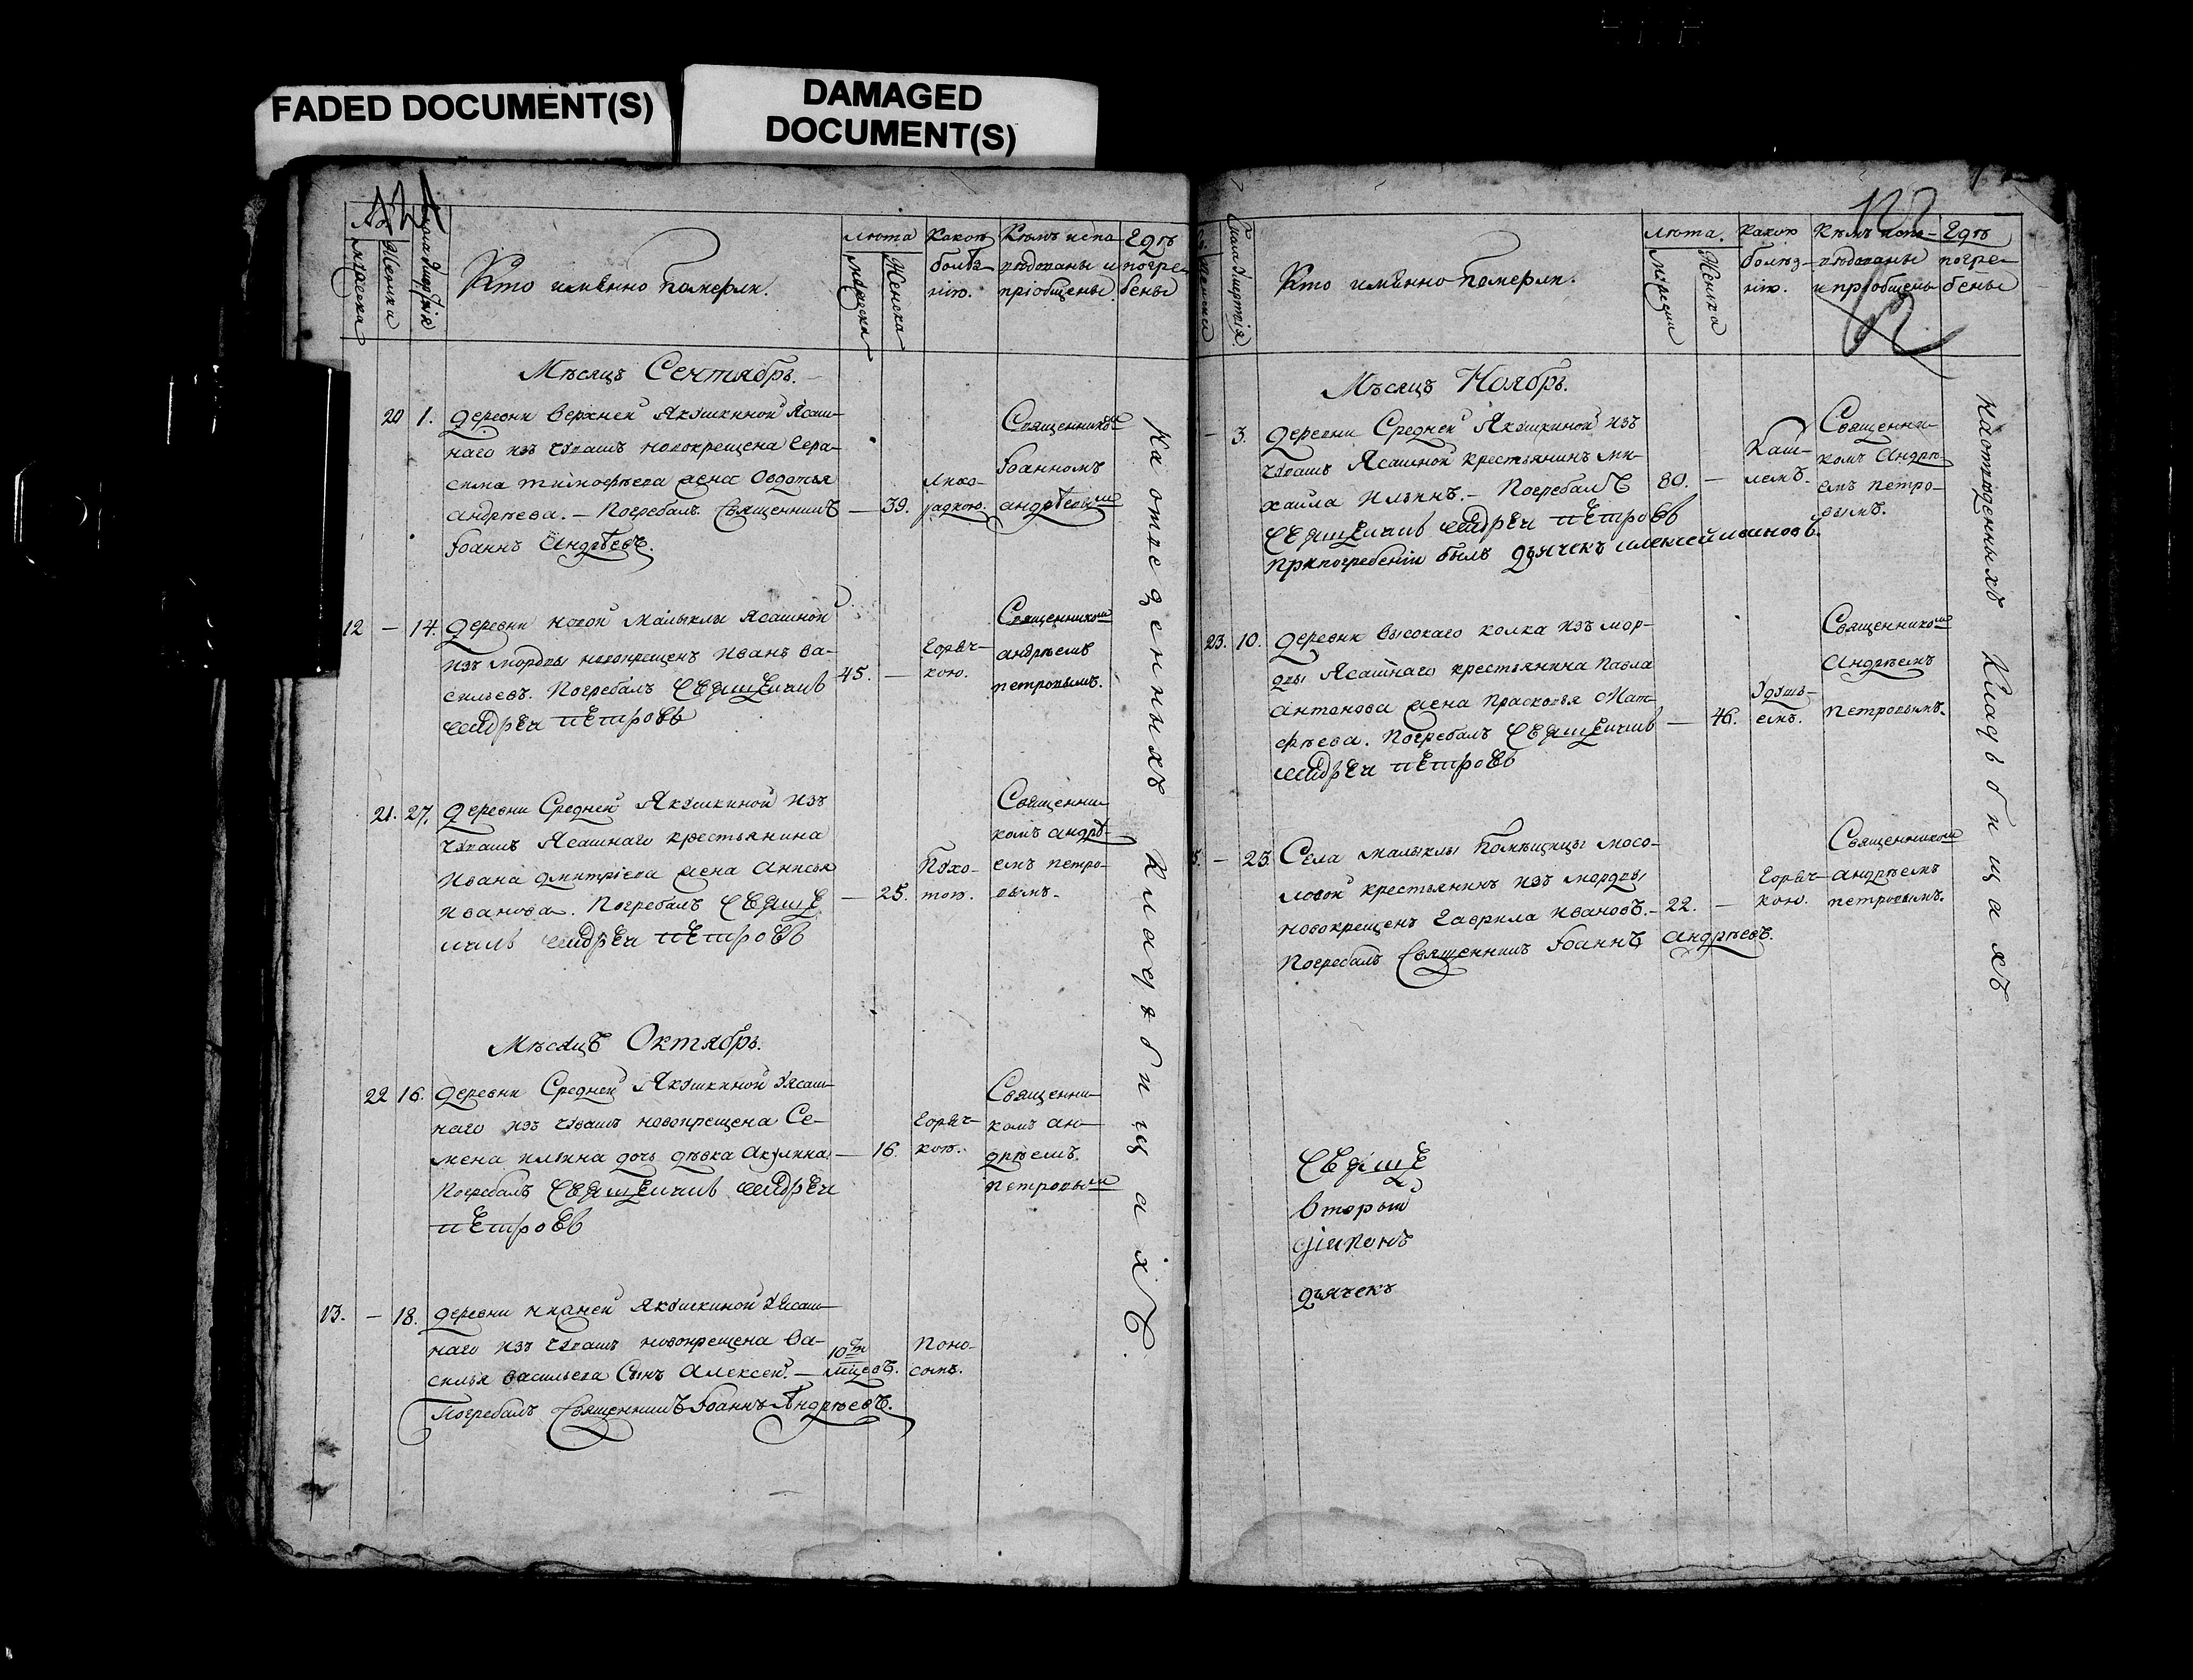 FADED DOCUMENT(S)
DAMAGED
DOCUMENT(S)
Кто имянно померли.
лѣта
мужеска
женска
Какою
болѣз-
нію.
Кѣмъ испо-
вѣдованы и
пріобщены.
Гдѣ
погре-
бены
Мѣсяцъ Сентябрь.
20 1. Деревни верхней Якушкиной Ясаш-
наго изъ Чувашъ новокрещена Гера-
сима тимофѣева жена Овдотья
Андрѣева. — Погребалъ Священникъ
Іоаннъ Андрѣевъ.
— 39.
Лихо-
радкою.
Священникомъ
Іоанномъ
андрѣевымъ
12 — 14. Деревни новой Малыклы Ясашной
изъ мордвы новокрещенъ Иванъ Ва-
сильевъ. Погребалъ Священникъ
Андрѣй Петровъ
45. —
Горяч-
кою.
Священникомъ
андрѣемъ
петровымъ.
21. 27. Деревни Средней Якушкиной изъ
Чувашъ Ясашнаго крестьянина
Ивана Дмитріева жена Анисья
Иванова. Погребалъ Свяще
никъ Андрѣй Петровъ
— 25.
Пухо-
тою.
Священни-
комъ андрѣ-
емъ петро-
вымъ.
Мѣсяцъ Октябрь.
22 16. Деревни Средней Якушкиной Ясаш-
наго изъ Чувашъ новокрещена Се-
мена ильина дочь дѣвка Акулина
Погребалъ Священникъ Андрѣй
Петровъ
— 16.
Горяч-
кою.
Священни-
комъ ан-
дрѣемъ.
Петровымъ
13. — 18. Деревни нижней Якушкиной Ясаш-
наго изъ Чувашъ новокрещена Ва-
силья Васильева Сынъ Алексей. —
Погребалъ Священникъ Іоаннъ Андрѣевъ.
10ти
мцовъ.
Поно-
сомъ.
На отведенныхъ кладбищахъ.
122
Кто имянно померли.
лѣта.
мужеска
женска
Какою
болѣз-
нію.
Кѣмъ испо-
вѣдованы
и пріобщены
Гдѣ
погре-
бены
Мѣсяцъ Ноябрь.
— 3. Деревни Средней Якушкиной изъ
Чувашъ Ясашной крестьянинъ Ми-
хайла Ильинъ. — Погребалъ
Священникъ Андрѣй Петровъ
При погребеніи былъ дьячекъ алексей ивановъ.
80. —
Каш-
лемъ.
Священни-
комъ Андрѣ-
емъ петро-
вымъ.
23. 10. Деревни высокаго колка изъ мор-
двы Ясашнаго крестьянина Павла
Антонова жена Прасковья Мат-
фѣева. Погребалъ Священникъ
Андрѣй Петровъ
— 46.
Удушь-
емъ.
Священникомъ
Андрѣемъ
Петровымъ.
— 25. Села малыклы Помѣщицы Мосо-
ловой крестьянинъ изъ мордвы
новокрещенъ Гаврила Ивановъ. —
Погребалъ Священникъ Іоаннъ Андрѣевъ.
22. —
Горяч-
кою.
Священникомъ
андрѣемъ
петровымъ.
На отведенныхъ Кладбищахъ
Свяще
Вторый
діаконъ
дьячекъ